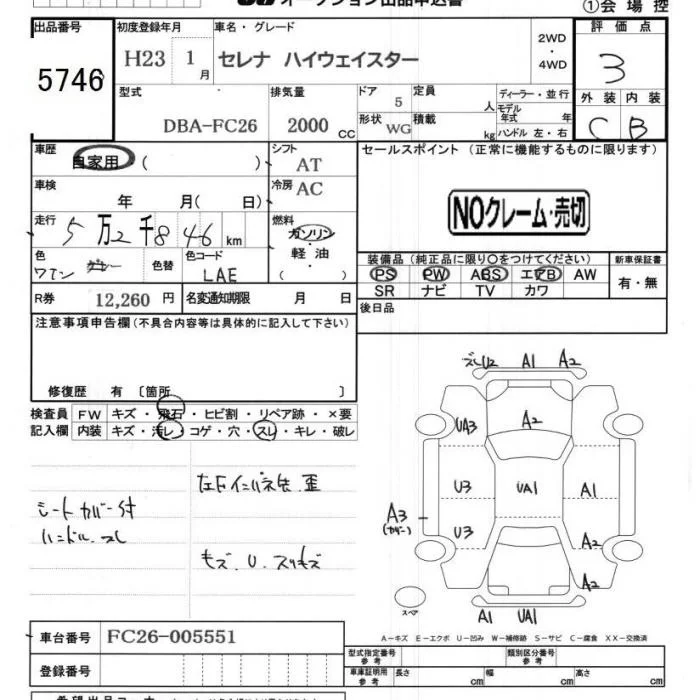 オークション出品申込書
①会場控
出品番号 初度登録年月 車名・グレード 評価点
5746 H23 1月 セレナ ハイウェイスター 2WD・4WD 3
型式 排気量 ドア 定員 ディーラー・並行 外装 内装
DBA-FC26 2000cc 5 人 モデル年式 年 C B
形状 WG 積載 kg ハンドル 左・右
車歴 自家用 ( ) シフト AT セールスポイント (正常に機能するものに限ります)
車検 年 月( 日) 冷房 AC NOクレーム・売切
走行 5万2千846km 燃料 ガソリン・軽油 ( )
色 ワイン 色替 色コード LAE
装備品 (純正品に限り〇をつけてください) 新車保証書
PS PW ABS エアB AW 有・無
SR ナビ TV カワ
R券 12,260円 名変通知期限 月 日
後日品
注意事項申告欄 (不具合内容等は具体的に記入して下さい)
修復歴 有 〔箇所 〕
検査員 FW キズ・飛石・ヒビ割・リペア跡・×要
記入欄 内装 キズ・汚レ・コゲ・穴・スレ・キレ・破レ
シートカバー付
ハンドル スレ
キズ.U.スリキズ
U2 A1 A2
UA3 A2
U3 UA1 A1
A3
U3 A2
A2
スペア
A1 UA1
A-キズ E-エクボ U-凹み W-補修跡 S-サビ C-腐食 XX-交換済
車台番号 FC26-005551
登録番号
型式指定番号 参考 類別区分番号 参考
車庫証明用 参考 長さ cm 幅 cm 高さ cm